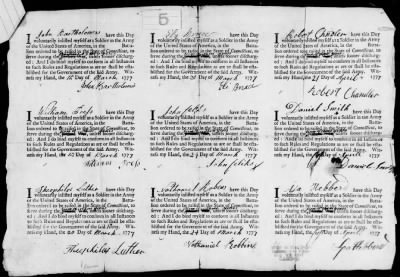 5
I John Bartholomew have this Day
voluntarily inlisted myself as a Soldier in the Army
of the United States of America, in the
Battalion ordered to be raised in the State of Connecticut, to
serve during the sooner discharged
: And I do bind myself to conform in all Instances
to such Rules and Regulations as are or shall be established
for the Government of the said Army. Witness
my Hand, the Day of March 1777
John Bartholomew
I Ely Brace have this Day
voluntarily inlisted myself as a Soldier in the Army
of the United States of America, in the
Battalion ordered to be raised in the State of Connecticut, to
serve during the sooner discharged
: And I do bind myself to conform in all Instances
to such Rules and Regulations as are or shall be established
for the Government of the said Army. Witness
my Hand, the Day of March 1777
Ely Brace
I Robert Chandler have this Day
voluntarily inlisted myself as a Soldier in the Army
of the United States of America, in the
Battalion ordered to be raised in the State of Connecticut, to
serve during the sooner discharged
: And I do bind myself to conform in all Instances
to such Rules and Regulations as are or shall be established
for the Government of the said Army. Witness
my Hand, the Day of April 1777
Robert Chandler
I William have this Day
voluntarily inlisted myself as a Soldier in the Army
of the United States of America, in the
Battalion ordered to be raised in the State of Connecticut, to
serve during the sooner discharged
: And I do bind myself to conform in all Instances
to such Rules and Regulations as are or shall be established
for the Government of the said Army. Witness
my Hand, the Day of March 1777
William
I John have this Day
voluntarily inlisted myself as a Soldier in the Army
of the United States of America, in the
Battalion ordered to be raised in the State of Connecticut, to
serve during the sooner discharged
: And I do bind myself to conform in all Instances
to such Rules and Regulations as are or shall be established
for the Government of the said Army. Witness
my Hand, the 29 Day of March 1777
John
I Daniel Smith have this Day
voluntarily inlisted myself as a Soldier in the Army
of the United States of America, in the
Battalion ordered to be raised in the State of Connecticut, to
serve during the sooner discharged
: And I do bind myself to conform in all Instances
to such Rules and Regulations as are or shall be established
for the Government of the said Army. Witness
my Hand, the Day of April 1777
Daniel Smith
I Theophilus Luther have this Day
voluntarily inlisted myself as a Soldier in the Army
of the United States of America, in the
Battalion ordered to be raised in the State of Connecticut, to
serve during the sooner discharged
: And I do bind myself to conform in all Instances
to such Rules and Regulations as are or shall be established
for the Government of the said Army. Witness
my Hand, the Day of March 1777
Theophilus Luther
I Nathaniel Robbins have this Day
voluntarily inlisted myself as a Soldier in the Army
of the United States of America, in the
Battalion ordered to be raised in the State of Connecticut, to
serve during the sooner discharged
: And I do bind myself to conform in all Instances
to such Rules and Regulations as are or shall be established
for the Government of the said Army. Witness
my Hand, the Day of March 1777
Nathaniel Robbins
I Robberts have this Day
voluntarily inlisted myself as a Soldier in the Army
of the United States of America, in the
Battalion ordered to be raised in the State of Connecticut, to
serve during the sooner discharged
: And I do bind myself to conform in all Instances
to such Rules and Regulations as are or shall be established
for the Government of the said Army. Witness
my Hand, the Day of April 1777